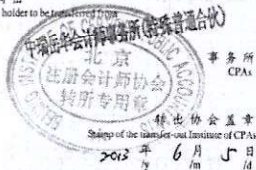 holder to be transferred from
中瑞岳华会计师事务所(特殊普通合伙)
事务所
CPAs
北京
注册会计师协会
转所专用章
转出协会盖章
Stamp of the transfer-out Institute of CPAs
2013 年 6 月 5 日
/y /m /d